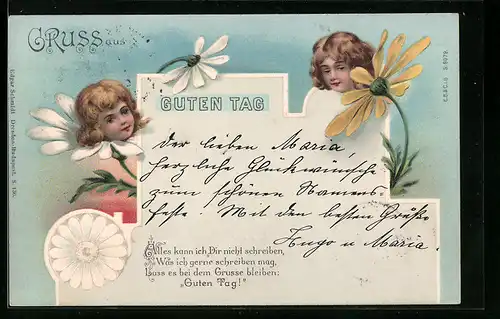 GRUSS aus
GUTEN TAG
Der lieben Maria,
herzliche Glückwünsche
zum schönen Namens-
feste! Mit den besten Grüße
Hugo u Maria.
Alles kann ich Dir nicht schreiben,
Was ich gerne schreiben mag,
Lass es bei dem Grusse bleiben:
„Guten Tag!"
Edgar Schmidt, Dresden/Budapest. S. 136.